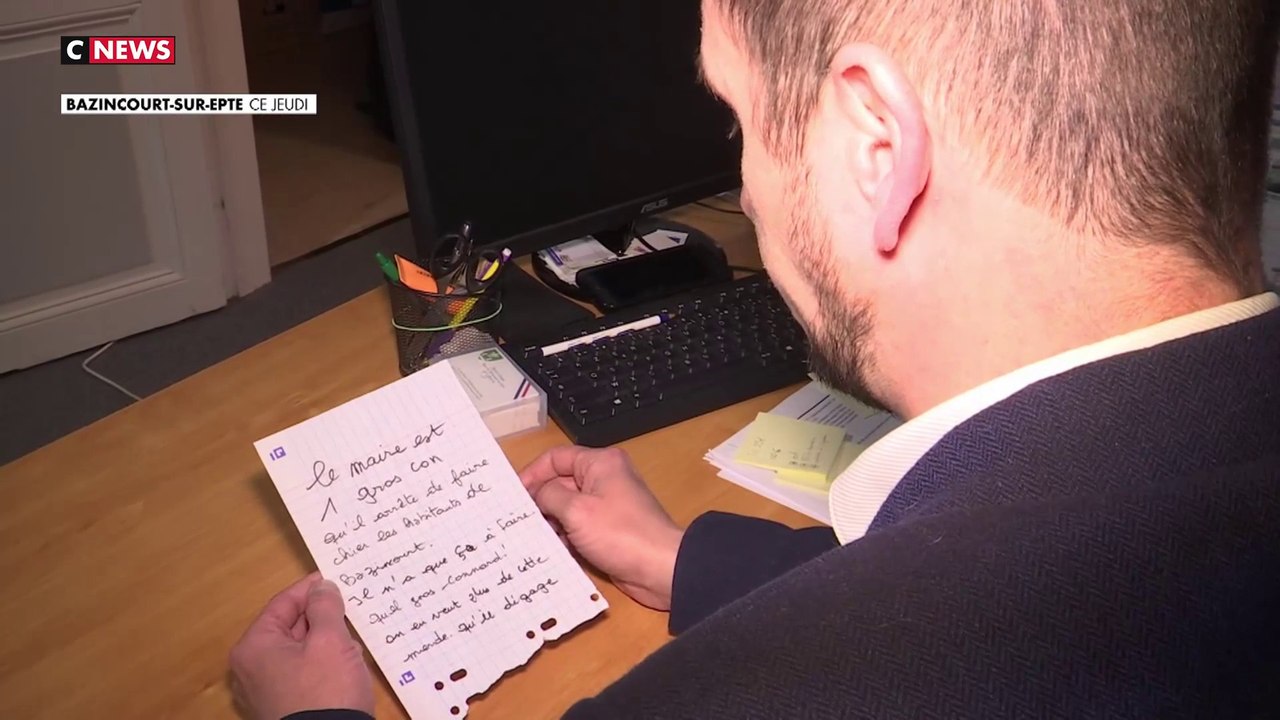 C NEWS
BAZINCOURT-SUR-EPTE CE JEUDI
ASUS
le maire est
1 gros con
qu'il arrête de faire
chier les habitants de
Bazincourt.
Il n'a que ça à faire
quel gros connard!
on en veut plus de cette
merde. qu'il dégage